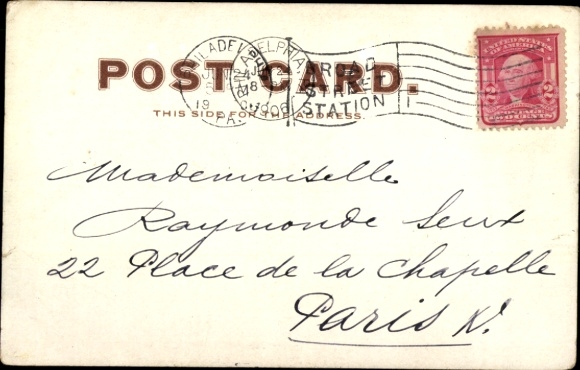 POST CARD.
THIS SIDE FOR THE ADDRESS.
PHILADELPHIA
PA.
1906
BROAD
STREET
STATION
UNITED STATES
OF AMERICA
2 2
POSTAGE
TWO CENTS
Mademoiselle
Raymonde
22 Place de la Chapelle
Paris